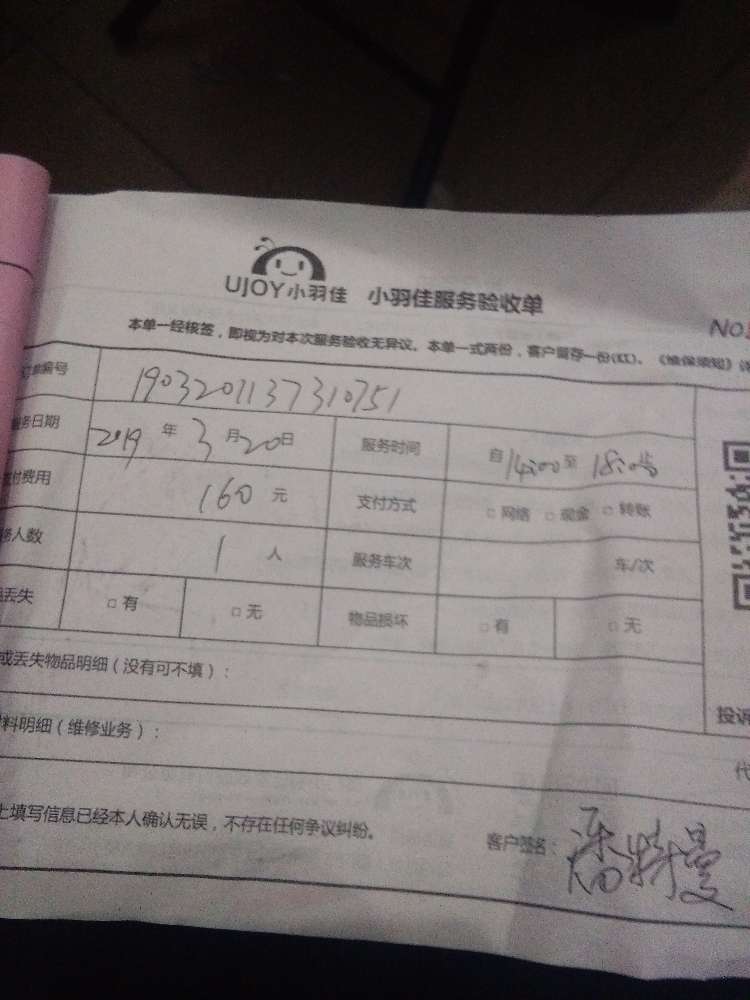 UJOY小羽佳 小羽佳服务验收单
NO.
本单一经核签，即视为对本次服务验收无异议。本单一式两份，客户留存一份(红)。《维保须知》
编号 1903201137310751
务日期 2019 年 3 月 20 日 服务时间 自 14:00 至 18:00
付费用 160 元 支付方式 □ 网络 □ 现金 □ 转账
人数 1 人 服务车次 车/次
丢失 □ 有 □ 无 物品损坏 □ 有 □ 无
或丢失物品明细（没有可不填）：
料明细（维修业务）： 投诉
代
上填写信息已经本人确认无误，不存在任何争议纠纷。
客户签名： 潘特曼